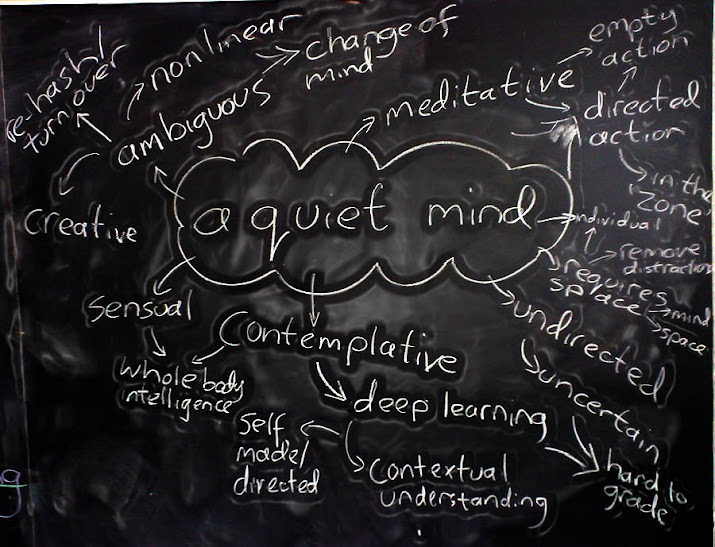 re-hash/
turnover
nonlinear
change of
mind
ambiguous
creative
meditative
empty
action
directed
action
in the
'zone'
a quiet mind
individual
remove
distraction
requires
space
mind
space
sensual
whole body
intelligence
contemplative
deep learning
self
model/
directed
contextual
understanding
undirected
uncertain
hard to
grade